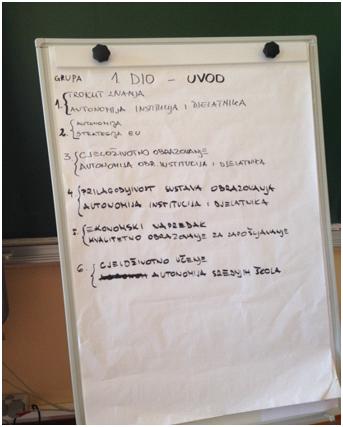 GRUPA 1. DIO - UVOD
1. { TROKUT ZNANJA
AUTONOMIJA INSTITUCIJA I DJELATNIKA
2. { AUTONOMIJA
STRATEGIJA EU
3. { CJELOŽIVOTNO OBRAZOVANJE
AUTONOMIJA OBR. INSTITUCIJA I DJELATNIKA
4. { PRILAGODLJIVOST SUSTAVA OBRAZOVANJA
AUTONOMIJA INSTITUCIJA I DJELATNIKA
5. { EKONOMSKI NAPREDAK
KVALITETNO OBRAZOVANJE ZA ZAPOŠLJAVANJE
6. { CJELOŽIVOTNO UČENJE
AUTONOMIJA SREDNJIH ŠKOLA